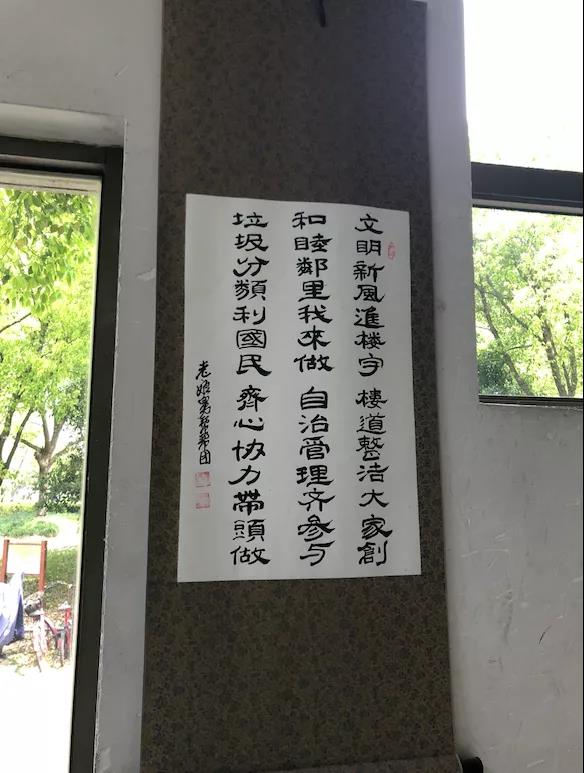 文明新風進楼宇 樓道整洁大家創
和睦鄰里我來做 自治管理齐參与
垃圾分類利國民 齊心协力帶頭做
老娘舅幫幫团